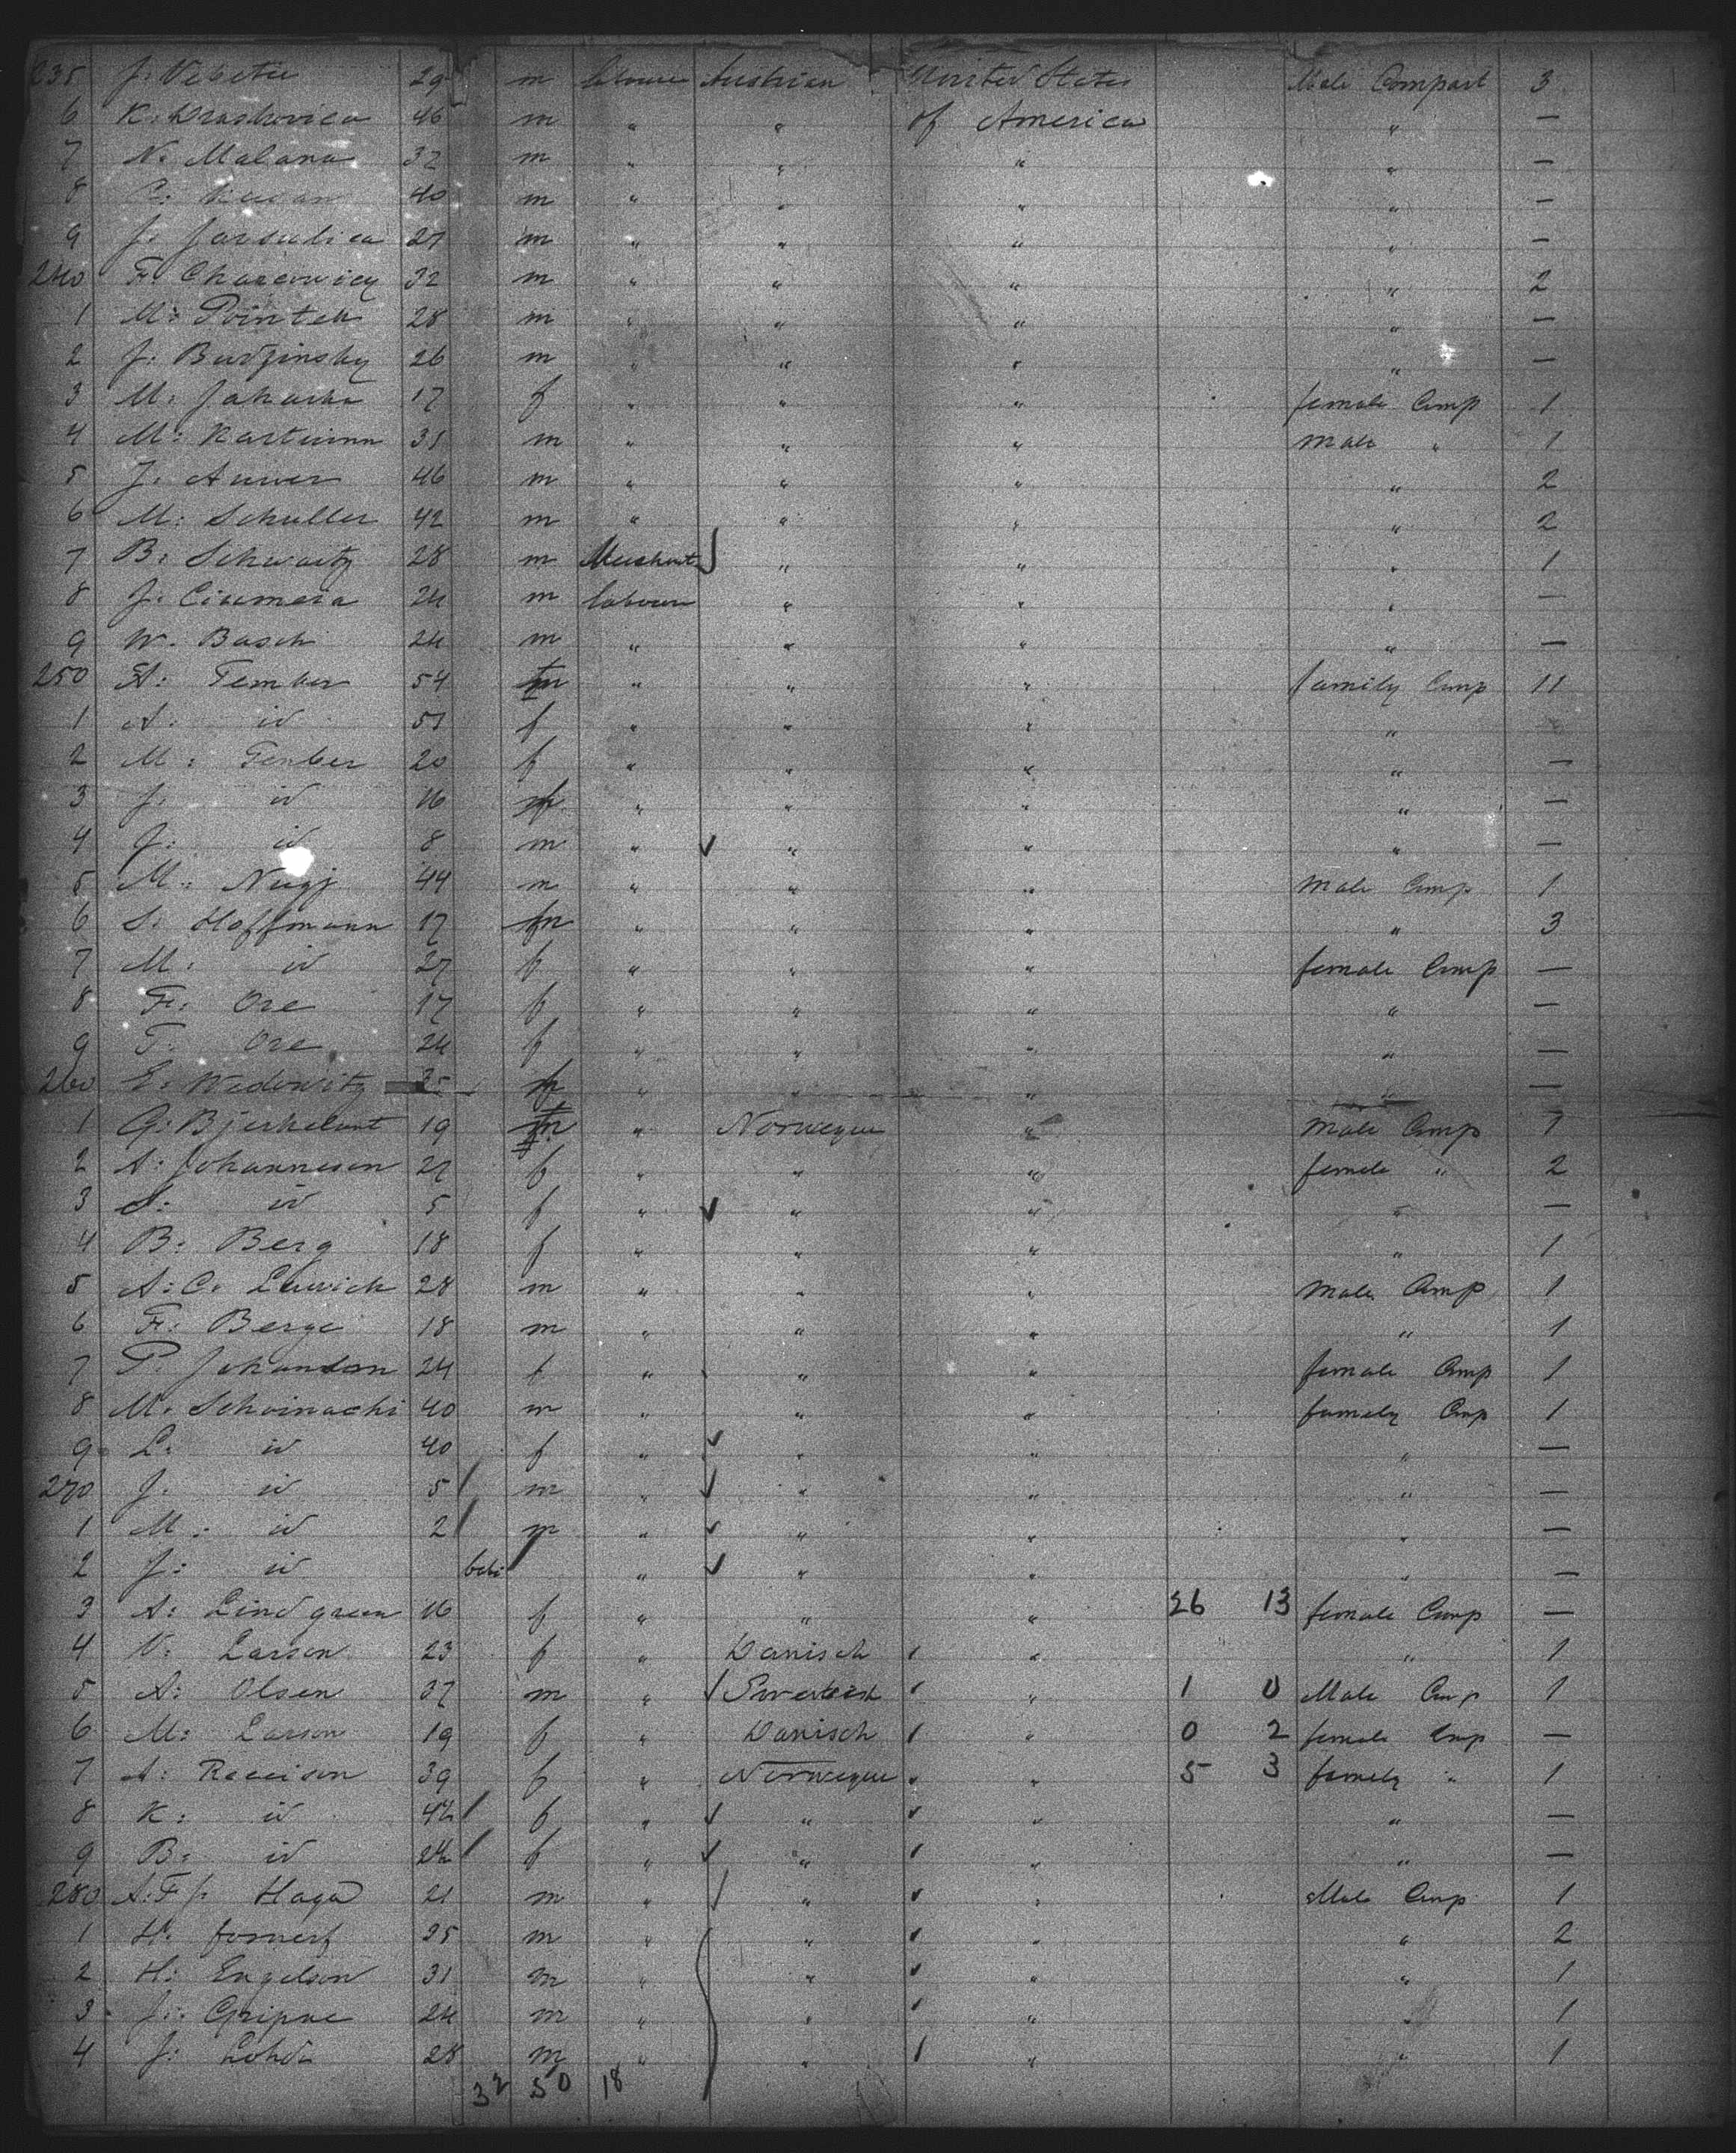 235 J. Vebetic 29 m labour Austrian United States Male Compart 3
6 K. Draskovica 46 m " " of America " —
7 N. Malana 32 m " " " " —
8 40 m " " " " —
9 J. Jarsulica 27 m " " " " —
240 F. Chazcowicz 32 m " " " " 2
1 M: Pointek 28 m " " " " —
2 J: Budzinsky 26 m " " " " —
3 M: 17 f " " " female Comp 1
4 M: 35 m " " " male " 1
5 J. Auwer 46 m " " " " 2
6 M: Schuller 42 m " " " " 2
7 B: Schwartz 28 m " " " 1
8 J. Ciumera 24 m labour " " " —
9 W. Basch 24 m " " " " —
250 A: Tember 54 m " " " family Comp 11
1 A: id 51 f " " " "
2 M: Tember 20 f " " " " —
3 J. id 16 f " " " " —
4 J: id 8 m " " " " —
5 M: 44 m " " " Male Comp 1
6 S. Hoffmann 17 m " " " " 3
7 M. id 27 f " " " female Comp —
8 F. Ore 17 f " " " " —
9 T. Ore 24 f " " " " —
260 E. Wedowitz 35 f " " " " —
1 G: Bjerkelunt 19 m " Norwegue " male Comp 1
2 A: Johannesen 27 f " " " female " 2
3 A: id 5 f " " " " —
4 B: Berg 18 f " " " " 1
5 A: C. 28 m " " " Male Comp 1
6 F: Berge 18 m " " " " 1
7 P. Johanson 24 f " " " female Comp 1
8 M. Schoinachi 40 m " " " famely Comp 1
9 L: id 40 f " " " " —
270 J. id 5 m " " " " —
1 M: id 2 m " " " " —
2 J: id bebi " " " " —
3 A: Lindgreen 16 f " " " 26 13 female Comp —
4 N: Larson 23 f " Danisch " " 1
5 A: Olsen 37 m " " 1 0 Male Comp 1
6 M: Larson 19 f " Danisch " 0 2 female Comp —
7 A: 39 f " Norwegue " 5 3 famely " 1
8 K: id f " " " " —
9 B: id f " " " " —
280 A: F. J. Haga 21 m " " " Male Comp 1
1 H. 25 m " " " " 2
2 H: Engelson 31 m " " " " 1
3 J: Gripne 24 m " " " " 1
4 J: 28 m " " " " 1
32 50 18